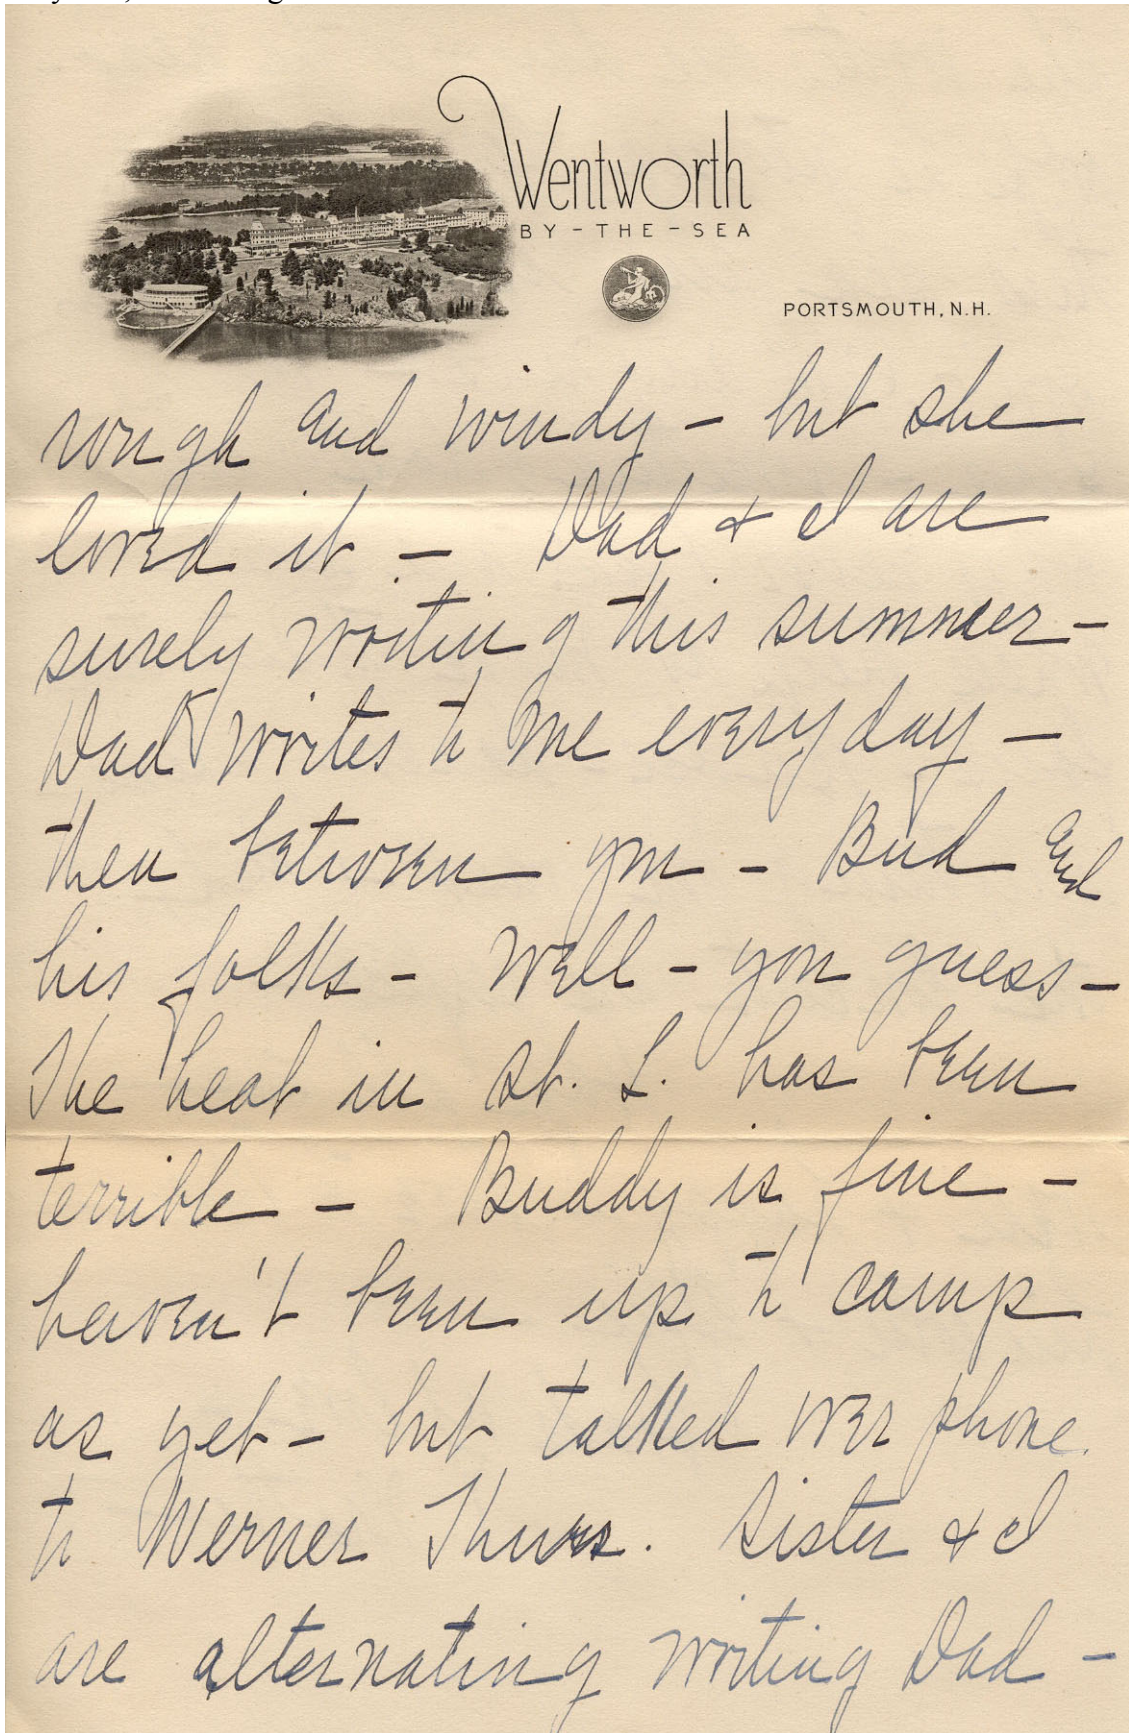 Wentworth
BY-THE-SEA
PORTSMOUTH, N.H.
rough and windy - but she
loved it - Dad & I are
surely writing this summer -
Dad writes to me everyday -
then between you - Bud and
his folks - Well - you guess -
The heat in St. L. has been
terrible - Buddy is fine -
haven't been up to camp
as yet - but talked over phone
to Werner Thurs. Sister & I
are alternating writing Dad -